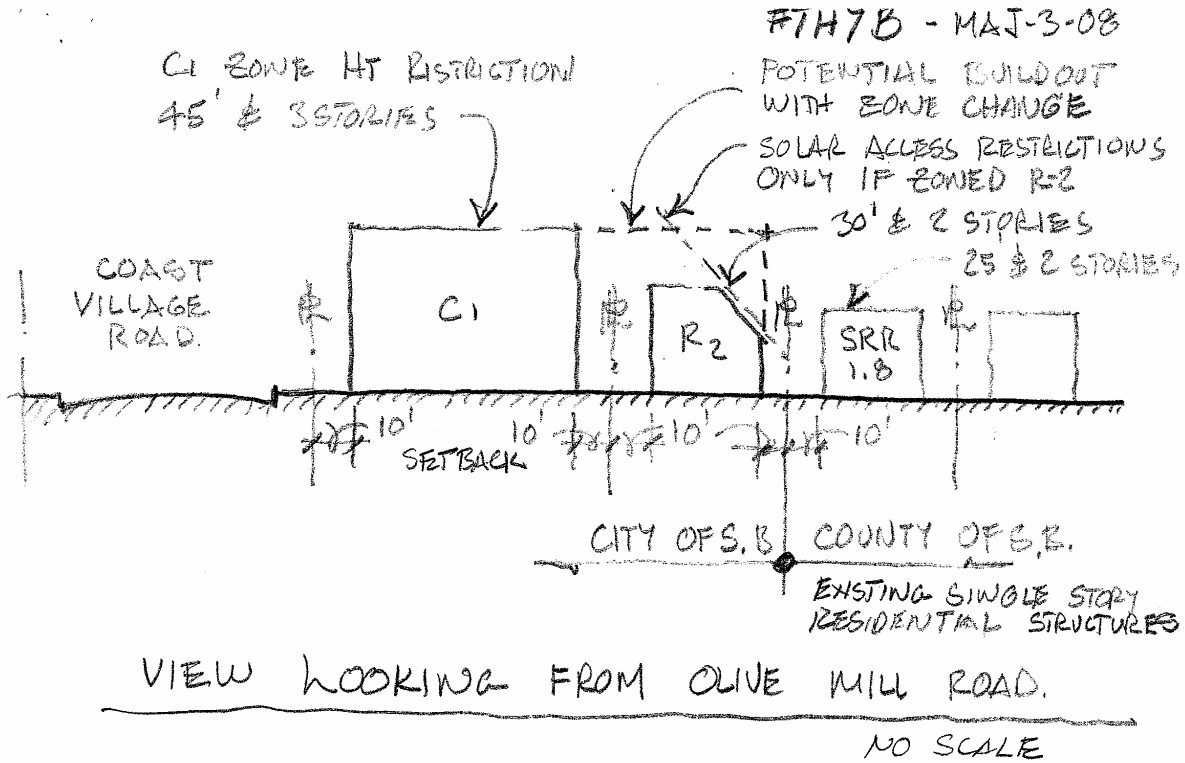 F7H7B - MAJ-3-08
C1 ZONE HT RISTRICTION
45' & 3 STORIES
POTENTIAL BUILDOUT
WITH ZONE CHANGE
SOLAR ACCESS RESTRICTIONS
ONLY IF ZONED R-2
30' & 2 STORIES
25 & 2 STORIES
COAST
VILLAGE
ROAD.
PL
C1
PL
R2
PL
SRR
1.8
PL
10'
SETBACK
10'
10'
10'
CITY OF S.B
COUNTY OF S.B.
EXISTING SINGLE STORY
RESIDENTIAL STRUCTURES
VIEW LOOKING FROM OLIVE MILL ROAD.
NO SCALE